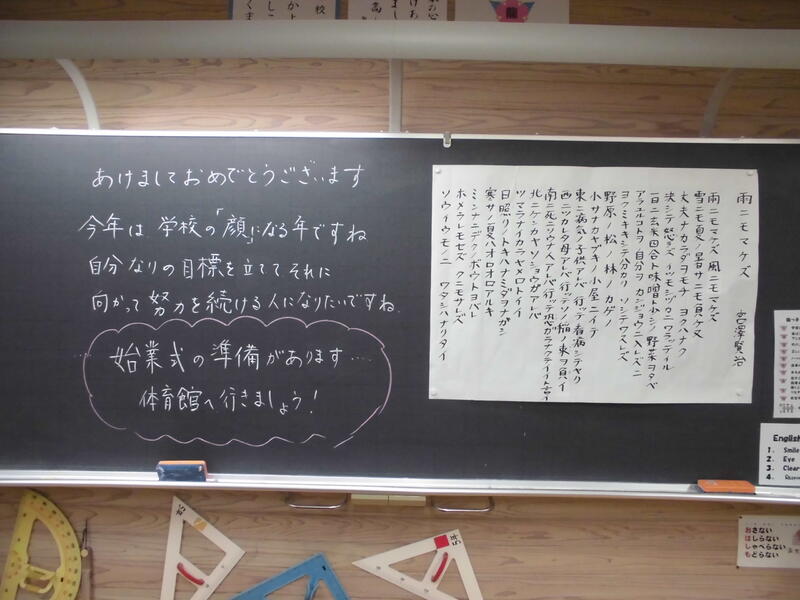 あけましておめでとうございます
今年は 学校の「顔」になる年ですね
自分なりの目標を立てて、それに
向かって 努力を続ける人になりたいですね。
始業式の準備があります……
体育館へ行きましょう!
雨ニモマケズ
宮澤賢治
雨ニモマケズ 風ニモマケズ
雪ニモ夏ノ暑サニモ負ケヌ
丈夫ナカラダヲモチ ヨクハナク
決シテ怒ラズ イツモシヅカニワラッテイル
一日ニ玄米四合ト味噌ト少シノ野菜ヲタベ
アラユルコトヲ 自分ヲカンジョウニ入レズニ
ヨクミキキシテワカリ ソシテワスレズ
野原ノ松ノ林ノカゲノ
小サナカヤブキノ小屋ニイテ
東ニ病気ノ子供アレバ 行ッテ看病シテヤリ
西ニツカレタ母アレバ 行ッテソノ稲ノ束ヲ負ヒ
南ニ死ニソウナ人アレバ 行ッテ恐ガラナクテイイト言ヒ
北ニケンカヤソショウガアレバ
ツマラナイカラヤメロトイイ
日照リノトキハナミダヲナガシ
寒サノ夏ハオロオロアルキ
ミンナニデクノボウトヨバレ
ホメラレモセズ クニモサレズ
ソウイウモノニ ワタシハナリタイ
English
1. Smile
2. Eye
3. Clear
4.
おさない
はしらない
しゃべらない
もどらない